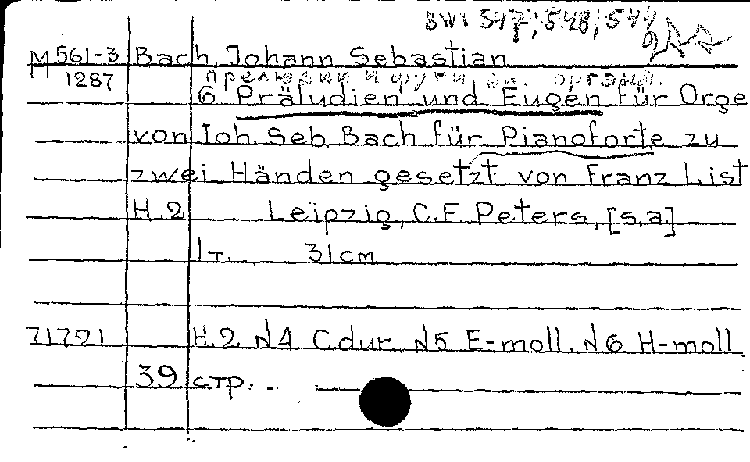 BWV 547, 548, 544
M 561-3 Bach, Johann Sebastian
1287 Прелюдии и фуги для органа.
6 Präludien und Fugen für Orge
von Joh. Seb. Bach für Pianoforte zu
zwei Händen gesetzt von Franz List
H. 2 Leipzig, C. F. Peters, [s.a]
1 т. 31cm
71721 H. 2 N4 C dur. N5 E-moll. N6 H-moll
39 стр.